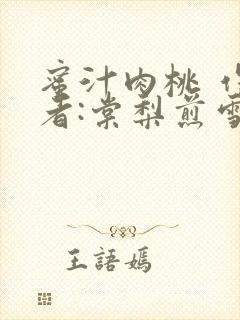 蜜汁肉桃
者:棠梨煎雪
王語嫣